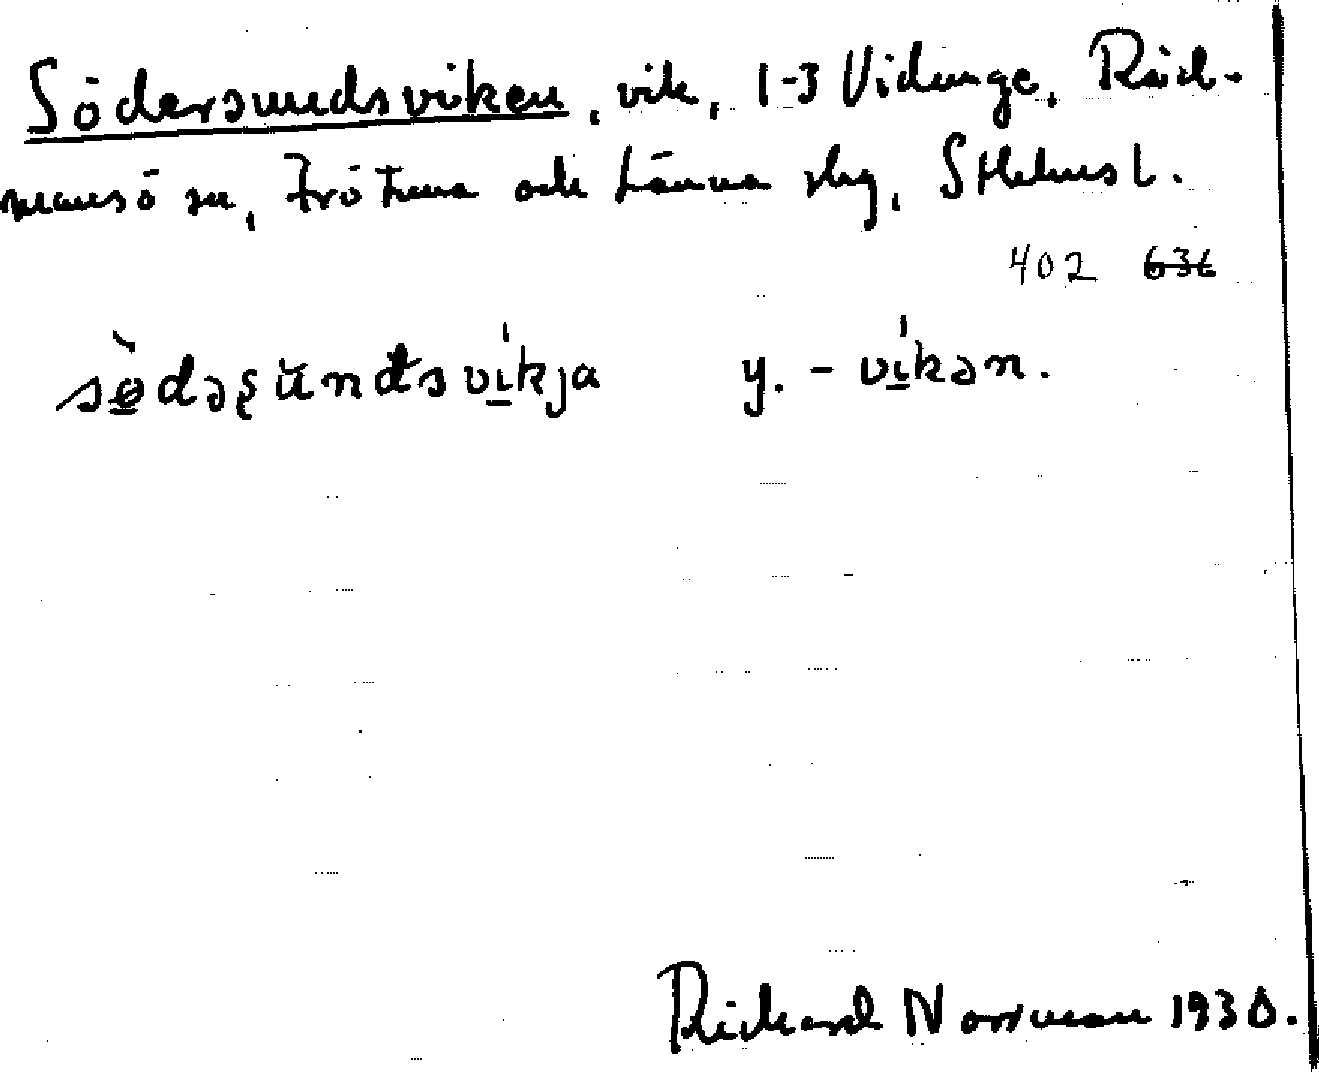 Södersundsviken, vik, 1-3 Vidinge, Råd-
mansö sn, Frötuna och Länna slg, Sthlms l.
402 636
sö̀dəʂŭndsvi̍kja y. - vi̍kən.
Richard Norrman 1930.